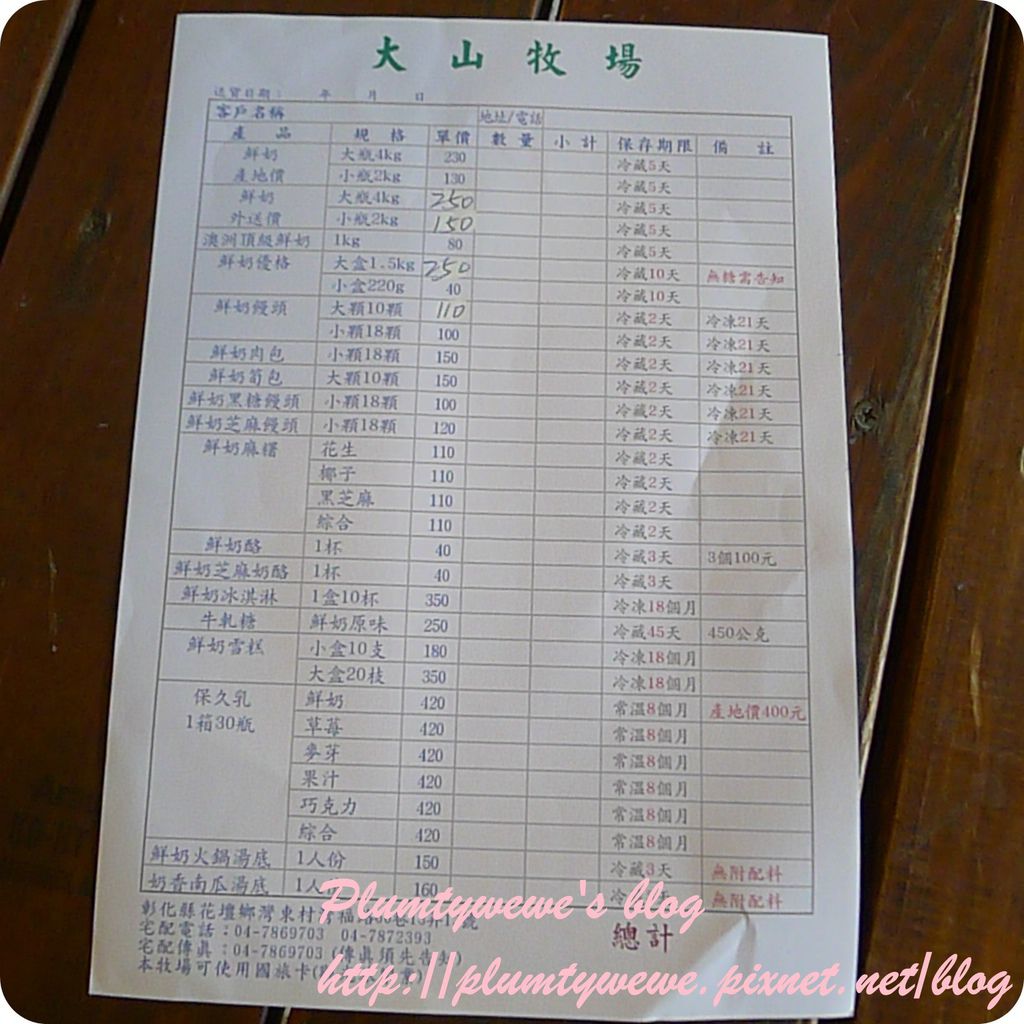 大山牧場
送貨日期： 年 月 日
客戶名稱 地址/電話
產品 規格 單價 數量 小計 保存期限 備註
鮮奶 大瓶4kg 230 冷藏5天
產地價 小瓶2kg 130 冷藏5天
鮮奶 大瓶4kg 250 冷藏5天
外送價 小瓶2kg 150 冷藏5天
澳洲頂級鮮奶 1kg 80 冷藏5天
鮮奶優格 大盒1.5kg 250 冷藏10天 無糖需告知
小盒220g 40 冷藏10天
鮮奶饅頭 大顆10顆 110 冷藏2天 冷凍21天
小顆18顆 100 冷藏2天 冷凍21天
鮮奶肉包 小顆18顆 150 冷藏2天 冷凍21天
鮮奶筍包 大顆10顆 150 冷藏2天 冷凍21天
鮮奶黑糖饅頭 小顆18顆 100 冷藏2天 冷凍21天
鮮奶芝麻饅頭 小顆18顆 120 冷藏2天 冷凍21天
鮮奶麻糬 花生 110 冷藏2天
椰子 110 冷藏2天
黑芝麻 110 冷藏2天
綜合 110 冷藏2天
鮮奶酪 1杯 40 冷藏3天 3個100元
鮮奶芝麻奶酪 1杯 40 冷藏3天
鮮奶冰淇淋 1盒10杯 350 冷凍18個月
牛軋糖 鮮奶原味 250 冷藏45天 450公克
鮮奶雪糕 小盒10支 180 冷凍18個月
大盒20枝 350 冷凍18個月
保久乳 鮮奶 420 常溫8個月 產地價400元
1箱30瓶 草莓 420 常溫8個月
麥芽 420 常溫8個月
果汁 420 常溫8個月
巧克力 420 常溫8個月
綜合 420 常溫8個月
鮮奶火鍋湯底 1人份 150 冷藏3天 無附配料
奶香南瓜湯底 1人 160 冷 無附配料
彰化縣花壇鄉灣東村
宅配電話：04-7869703 04-7872393
宅配傳真：04-7869703 (傳真須先告知)
本牧場可使用國旅卡
總計
Plumtywewe's blog
http://plumtywewe.pixnet.net/blog